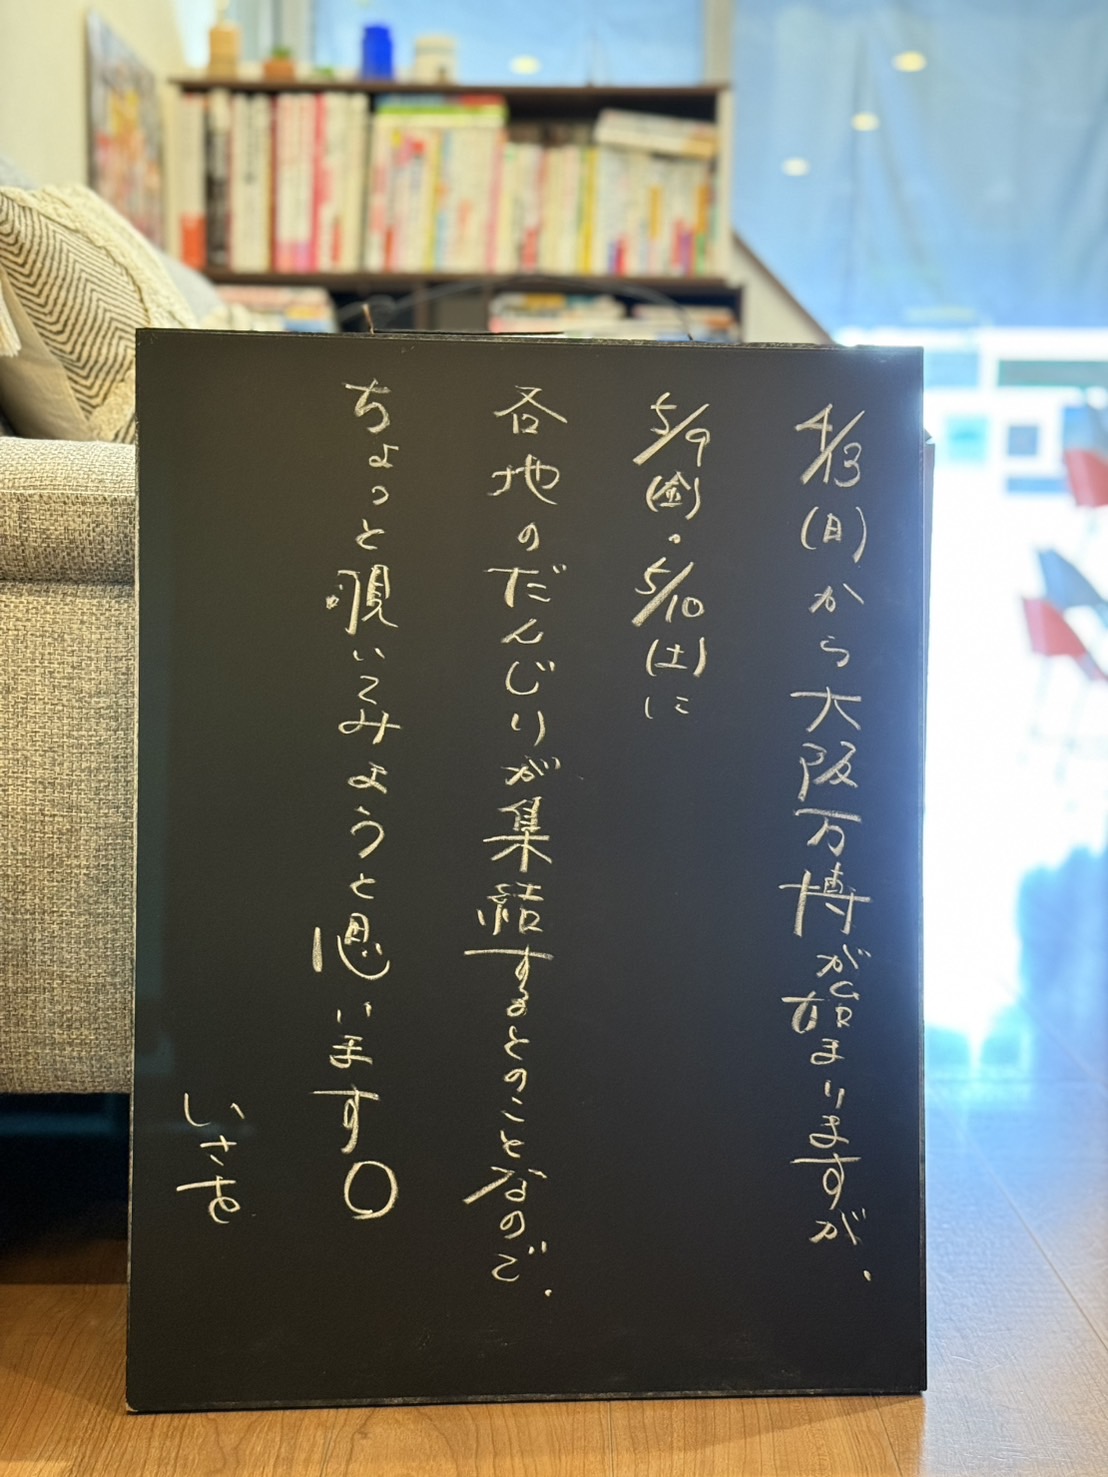 4/13(日)から大阪万博が始まりますが、
5/9(金)・5/10(土)に
各地のだんじりが集結するとのことなので、
ちょっと覗いてみようと思います。
いさを